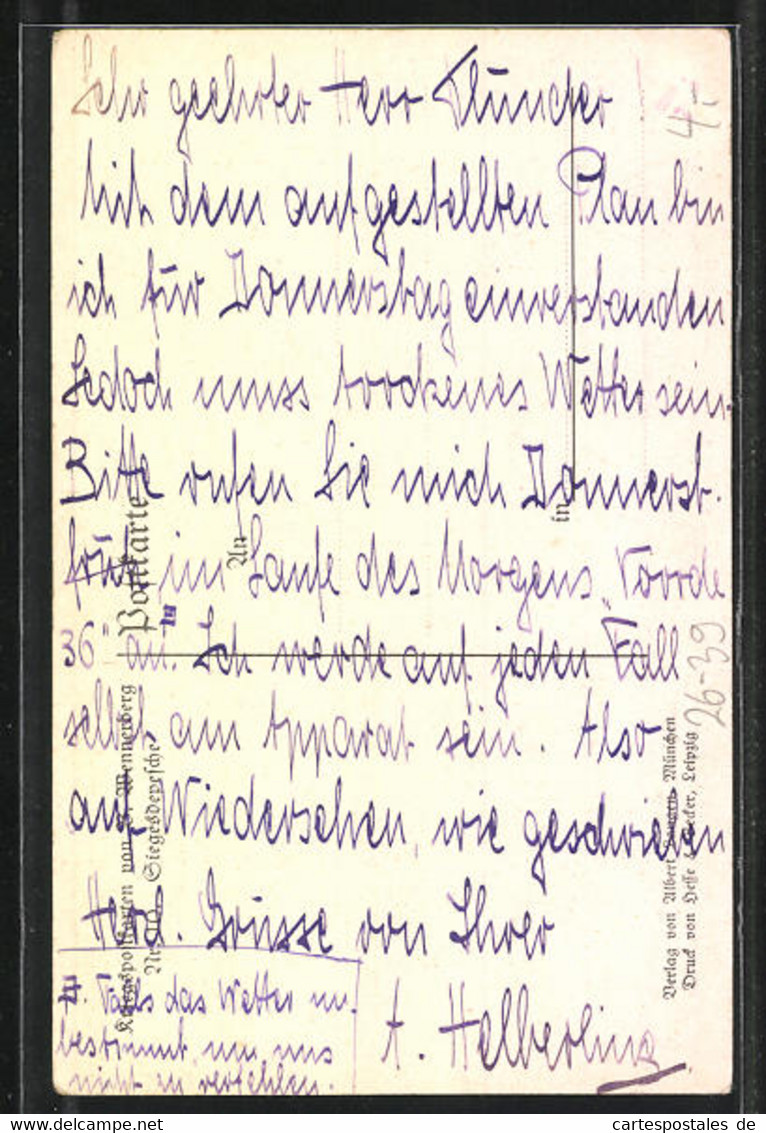 Sehr geehrter Herr
Mit dem aufgestellten Plan bin
ich für Donnerstag einverstanden
Jedoch muss trockenes Wetter sein.
Bitte rufen Sie mich Donnerst.
früh im Laufe des Morgens "Voorde
36" an. # Ich werde auf jeden Fall
selbst am Apparat sein. Also
auf Wiedersehen, wie geschrieben
Herzl. Grüsse von Ihrer
A. Helberling
#. Falls das Wetter un-
bestimmt, um uns
nicht zu verfehlen.
4.-
26-39
Postkarte
An
in
Kriegspostkarten von B. Wennerberg
Siegesdepesche
Verlag von Albert Langen, München
Druck von Hesse & Becker, Leipzig
cartespostales de